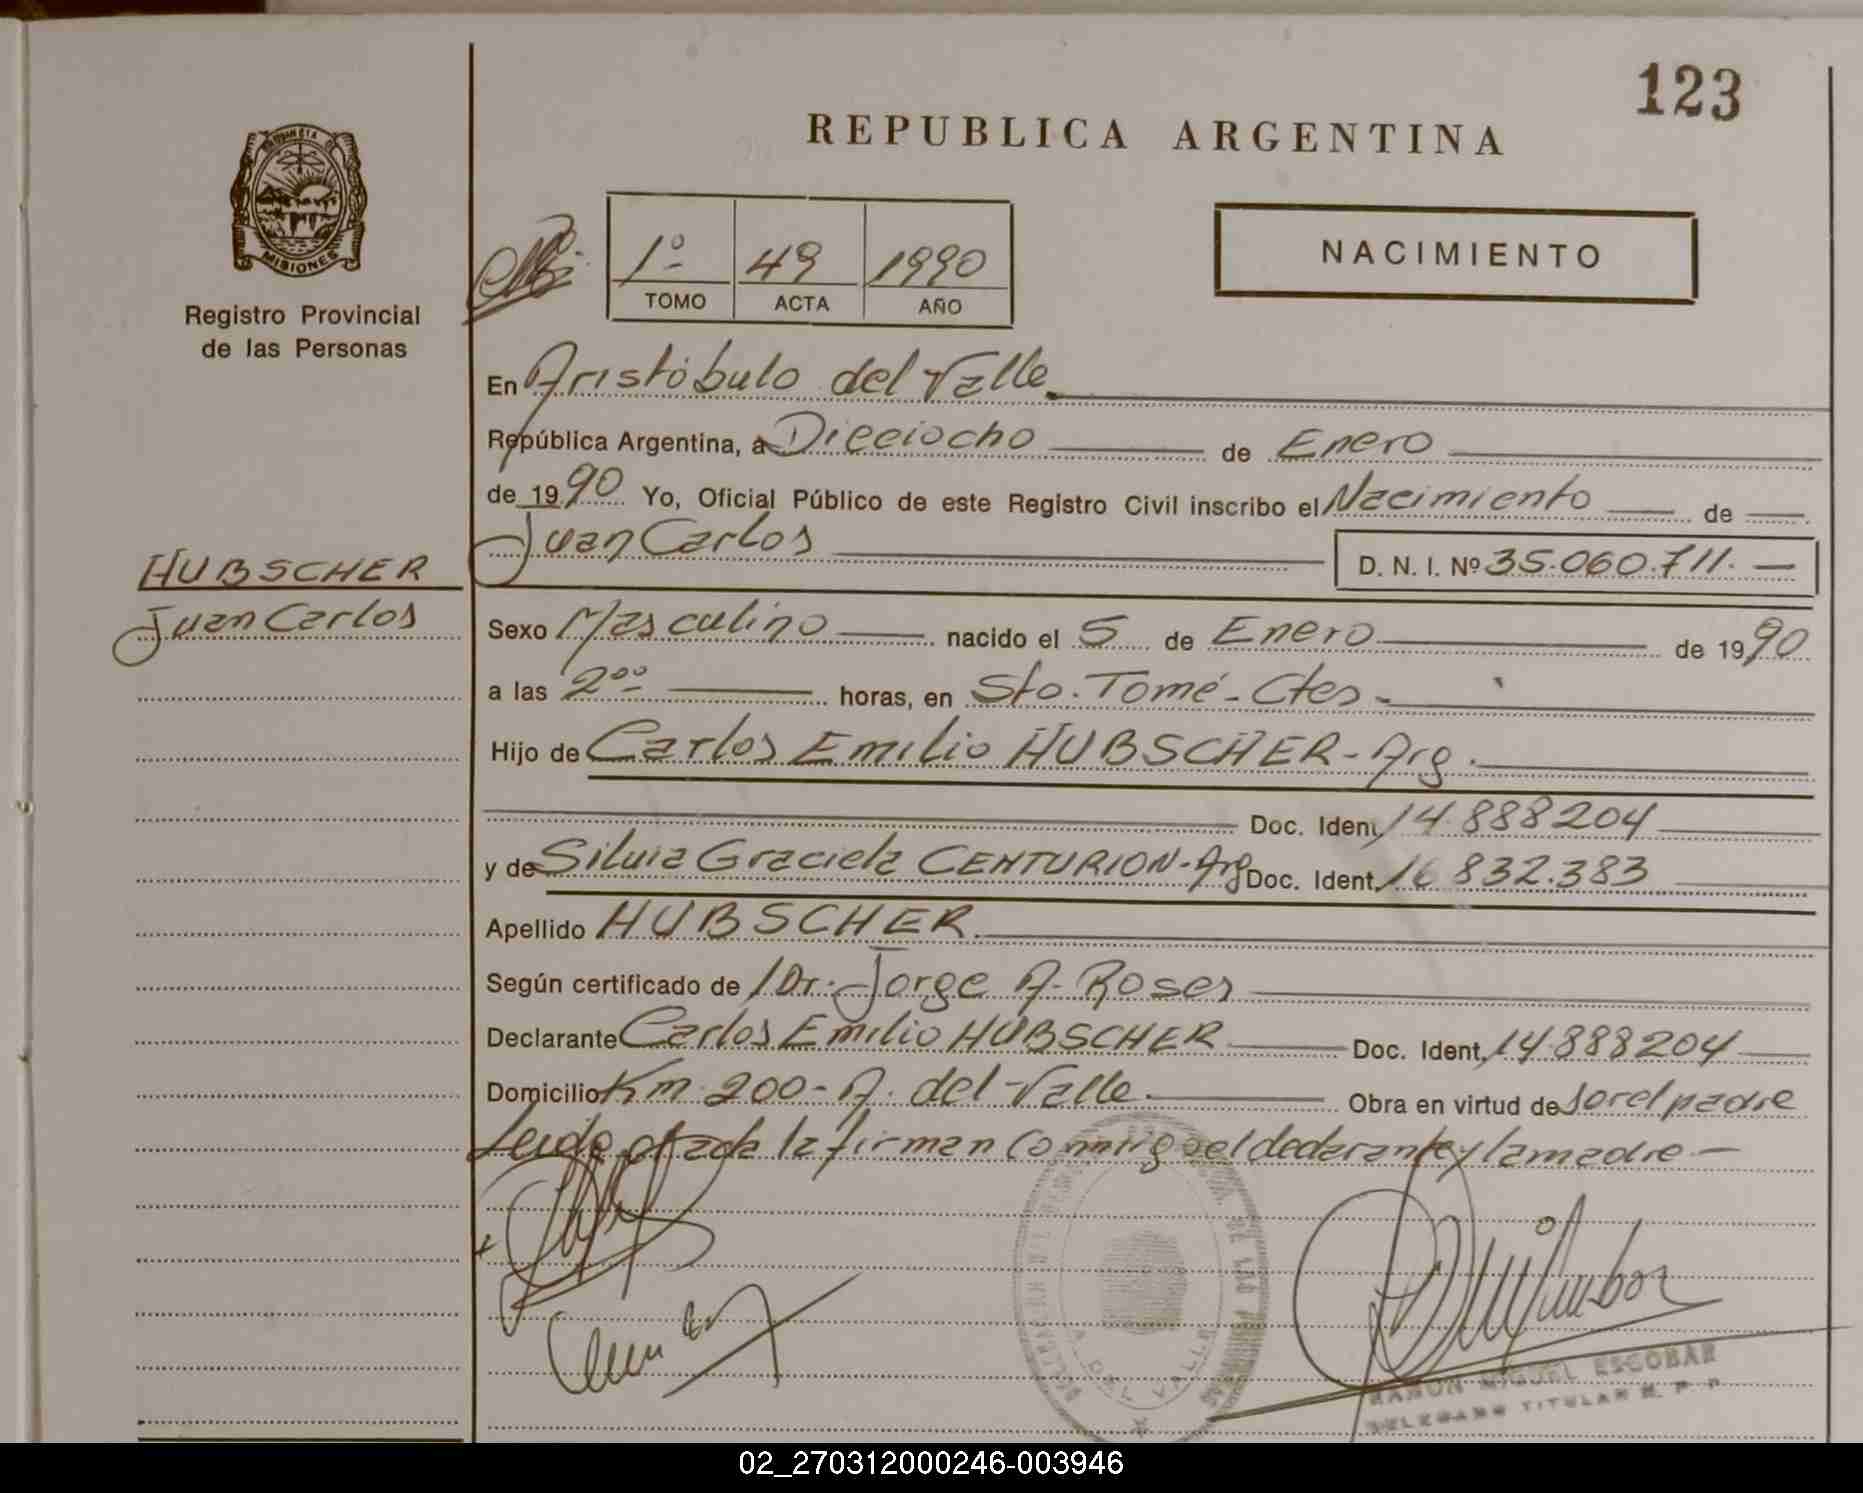 123
REPUBLICA ARGENTINA
PROVINCIA
MISIONES
Registro Provincial
de las Personas
1º 49 1990
TOMO ACTA AÑO
NACIMIENTO
En Aristóbulo del Valle
República Argentina, a Dieciocho de Enero
de 1990 Yo, Oficial Público de este Registro Civil inscribo el Nacimiento de
Juan Carlos D. N. I. Nº 35.060.711.—
HUBSCHER
Juan Carlos
Sexo Masculino nacido el 5 de Enero de 1990
a las 2⁰⁰ horas, en Sto. Tomé - Ctes -
Hijo de Carlos Emilio HUBSCHER - Arg.
Doc. Ident. 14.888204
y de Silvia Graciela CENTURION - Arg Doc. Ident. 16.832.383
Apellido HUBSCHER
Según certificado de Dr. Jorge A. Roses
Declarante Carlos Emilio HUBSCHER Doc. Ident. 14.888204
Domicilio Km. 200 - A. del Valle Obra en virtud de ser el padre
Leida el acta la firman conmigo el declarante y la madre —
A. DEL VALLE
RAMON MIGUEL ESCOBAR
DELEGADO TITULAR R. P. P.
02_270312000246-003946